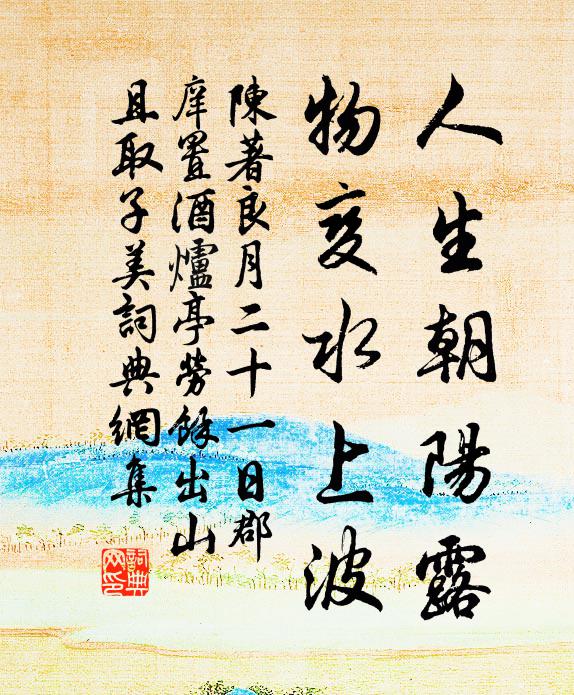 人生朝陽露
物变水上波
陳著良月二十一日郡
庠置酒爐亭勞餘出山
且取子美詞典網集
詞典網印